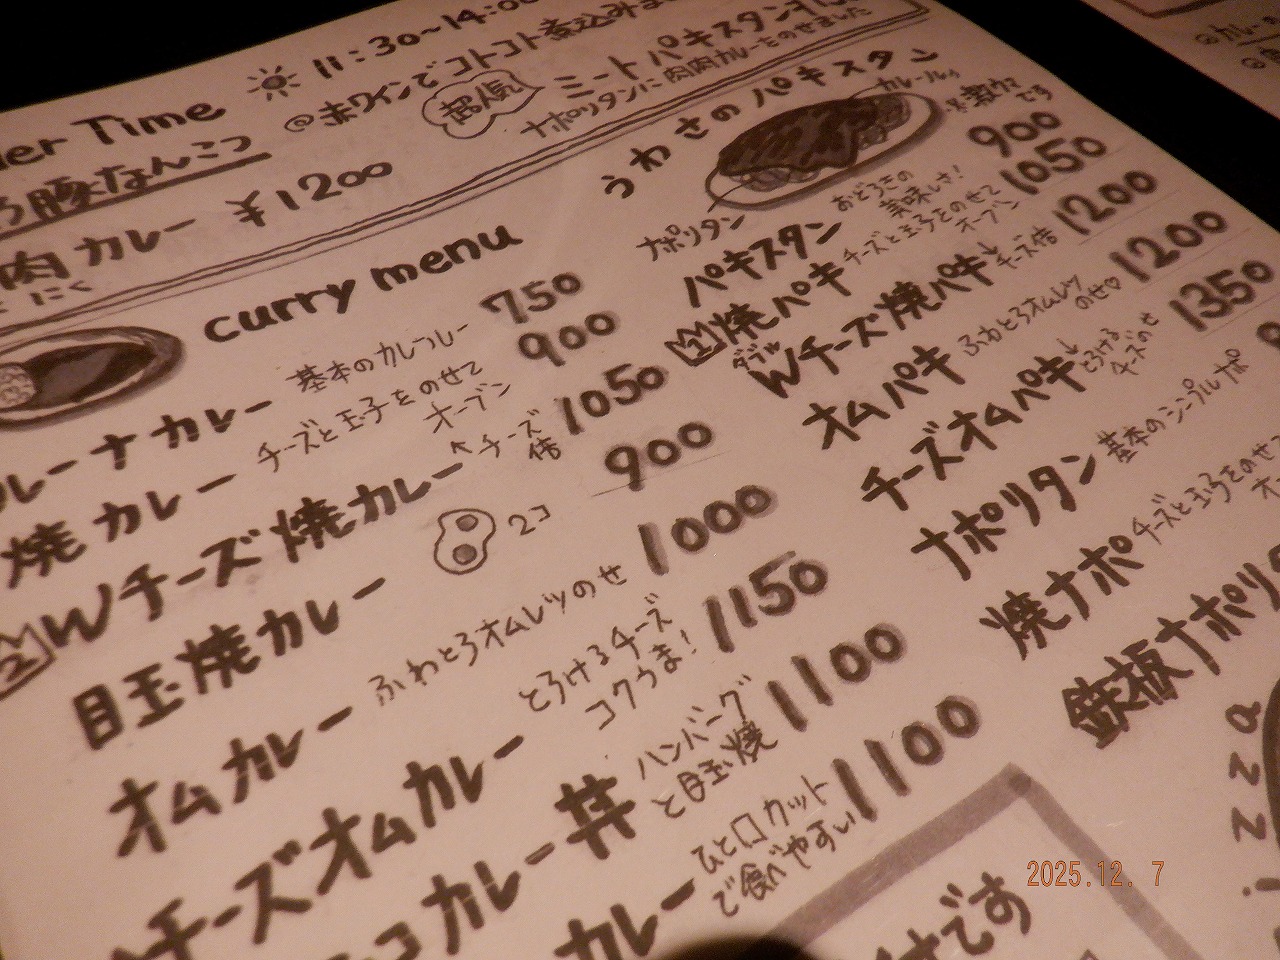 der Time
11:30~14:00
豚なんこつ
@赤ワインでコトコト煮込みま
肉カレー ¥1200
にく
超人気
ミートパキスタン
ナポリタンに肉肉カレーをのせました
curry menu
ルーナカレー 基本のカレールー 750
焼カレー チーズと玉子をのせてオーブン 900
Wチーズ焼カレー チーズ倍 1050
目玉焼カレー 2コ 900
オムカレー ふわとろオムレツのせ 1000
チーズオムカレー とろけるチーズ コクうま! 1150
コカレー丼 ハンバーグと目玉焼 1100
カレー ひと口カットで食べやすい 1100
うわさのパキスタン
カレールゥ
ナポリタン
激ウマです
パキスタン おどろきの美味しさ! 900
焼パキ チーズと玉子をのせてオーブン 1050
ダブル
Wチーズ焼パキ チーズ倍 1200
オムパキ ふわとろオムレツのせ♡ 1200
チーズオムパキ とろけるチーズのせ 1350
ナポリタン 基本のシンプルナポ
焼ナポ チーズと玉子をのせて
鉄板ナポリ
izza
です
2025.12. 7